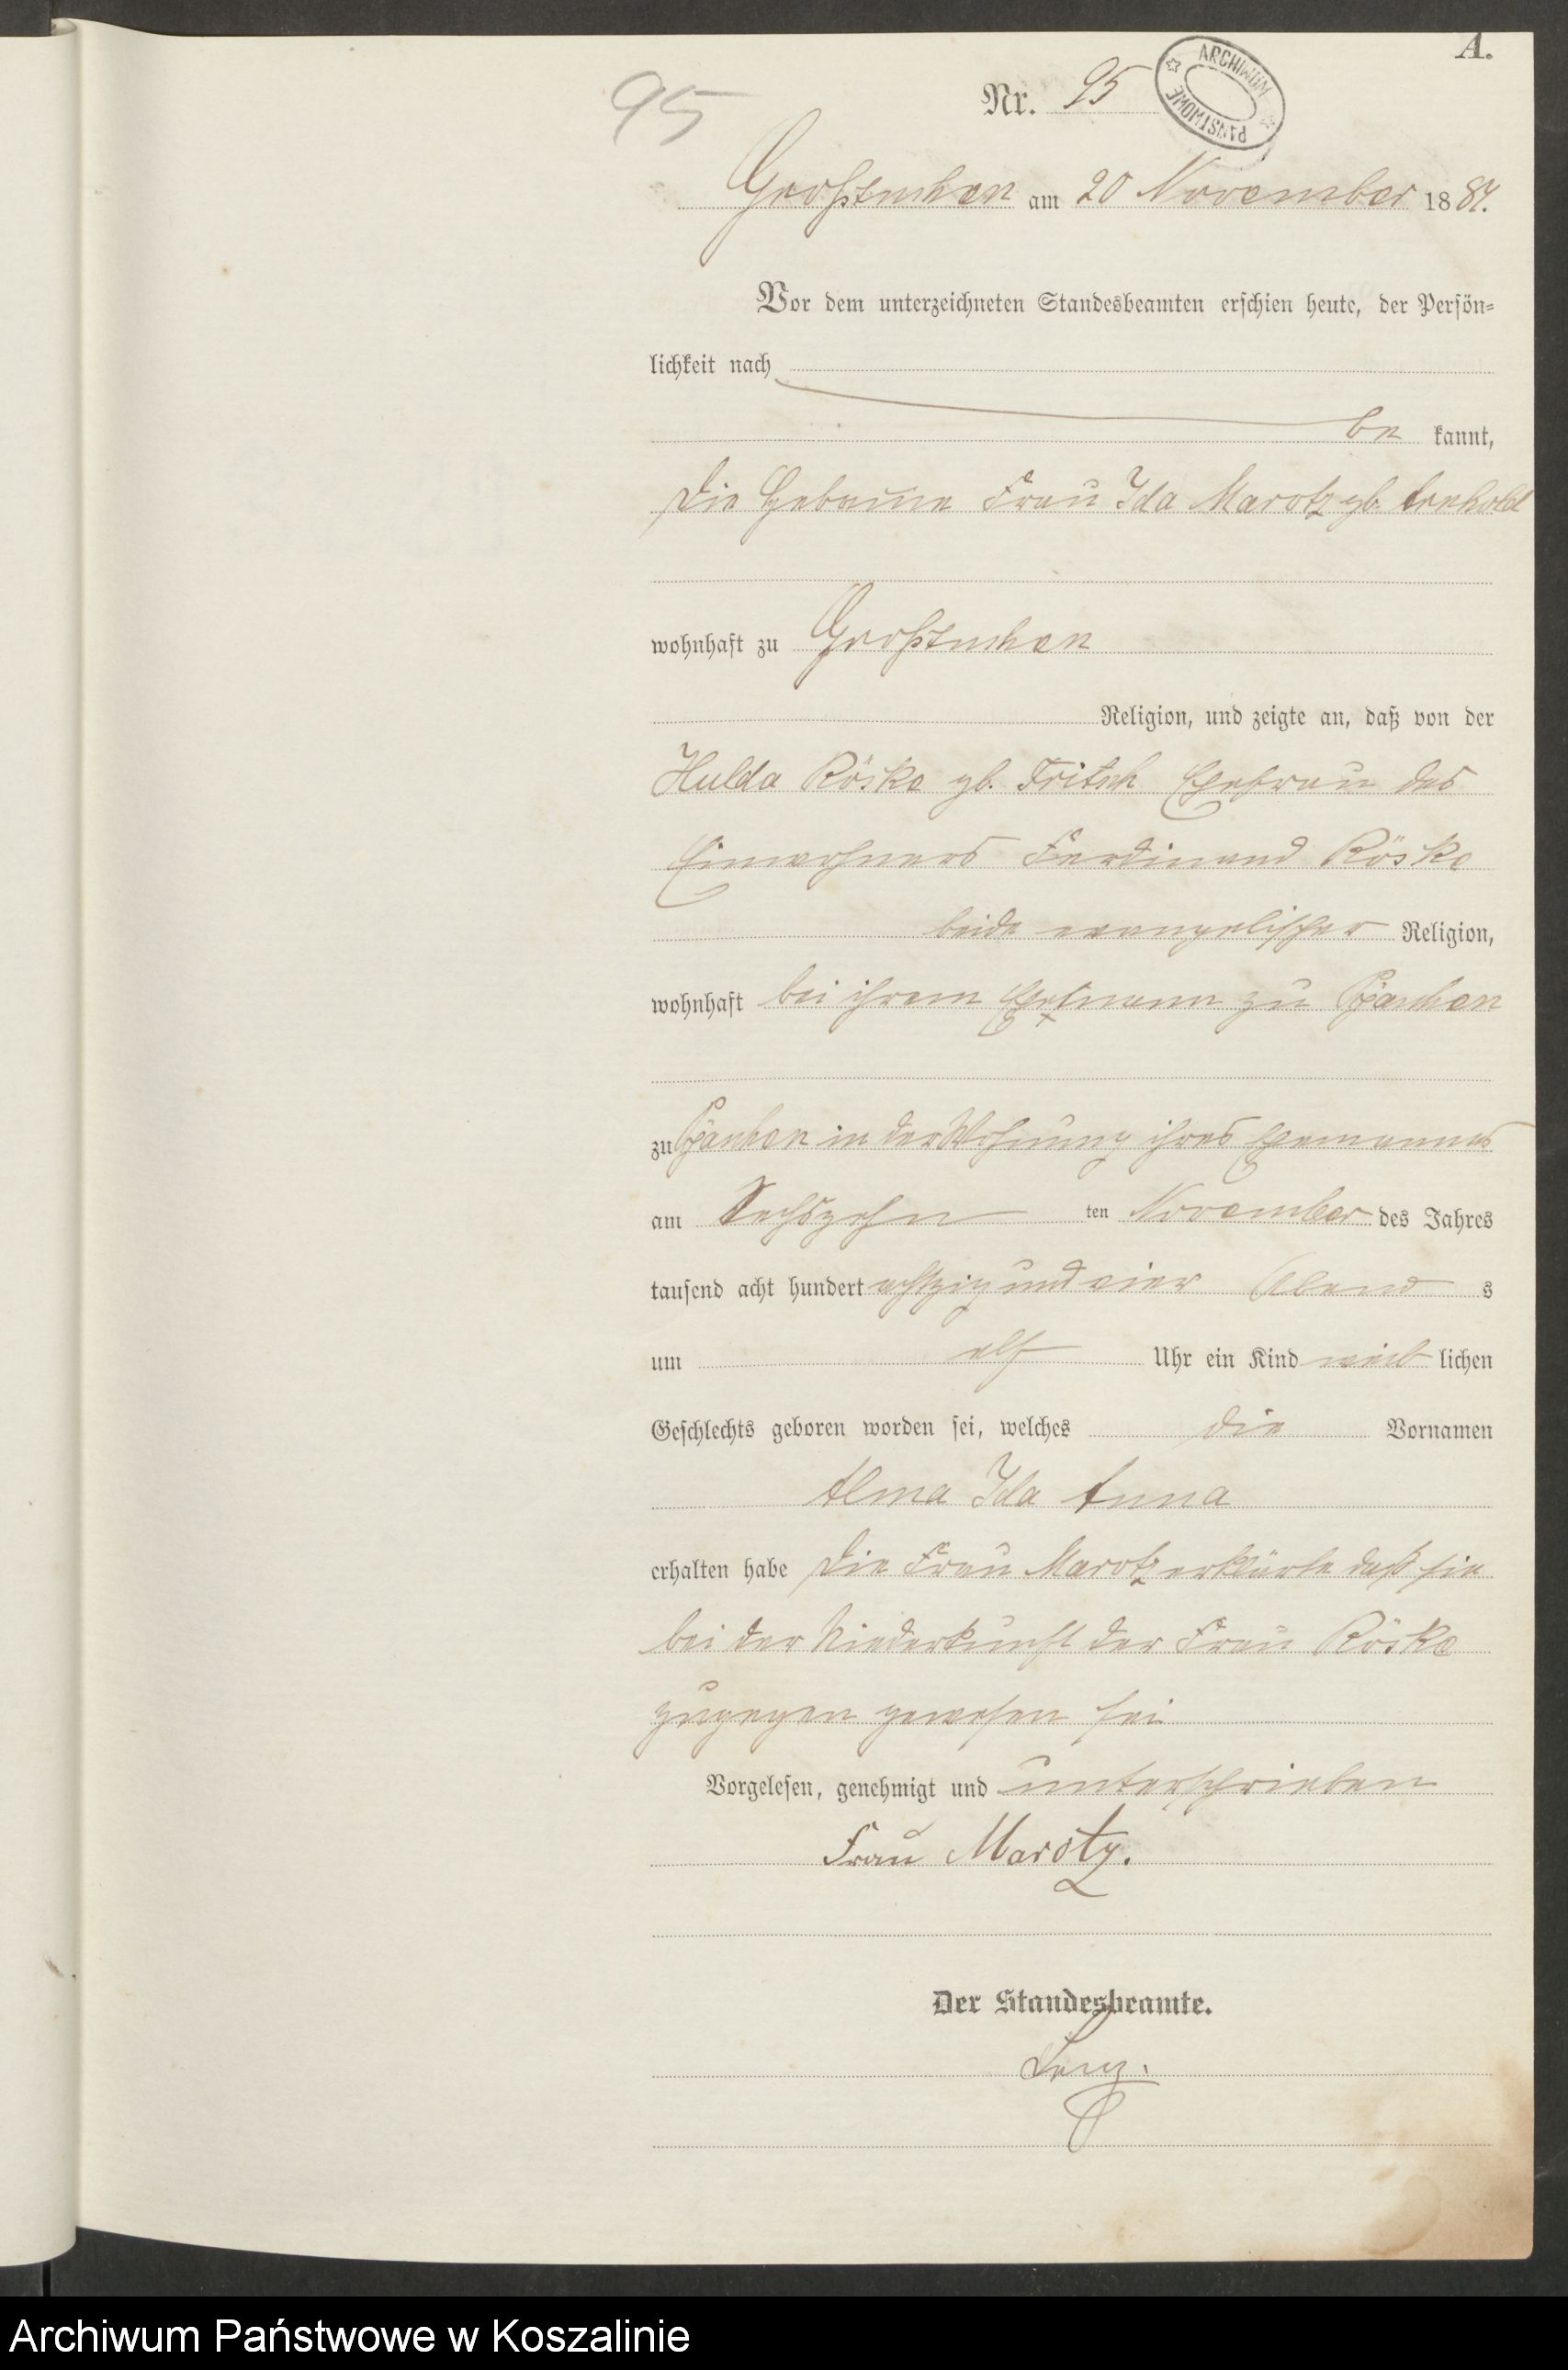 A.
95
Nr. 95
ARCHIWUM PAŃSTWOWE
Großtuchen am 20 November 1884.
Vor dem unterzeichneten Standesbeamten erschien heute, der Persön-
lichkeit nach
be kannt,
die Hebamme Frau Ida Marotz gb.
wohnhaft zu Großtuchen
Religion, und zeigte an, daß von der
Hulda Röske gb. Fritsch Ehefrau des
Einwohners Ferdinand Röske
beide evangelischer Religion,
wohnhaft bei ihrem Ehemann zu
zu in der Wohnung ihres Ehemannes
am Sechszehn ten November des Jahres
tausend acht hundert achtzig und vier Abend s
um elf Uhr ein Kind weib lichen
Geschlechts geboren worden sei, welches die Vornamen
Alma Ida Anna
erhalten habe die Frau Marotz erklärte daß sie
bei der Niederkunft der Frau Röske
zugegen gewesen sei
Vorgelesen, genehmigt und unterschrieben
Frau Marotz.
Der Standesbeamte.
Lenz.
Archiwum Państwowe w Koszalinie